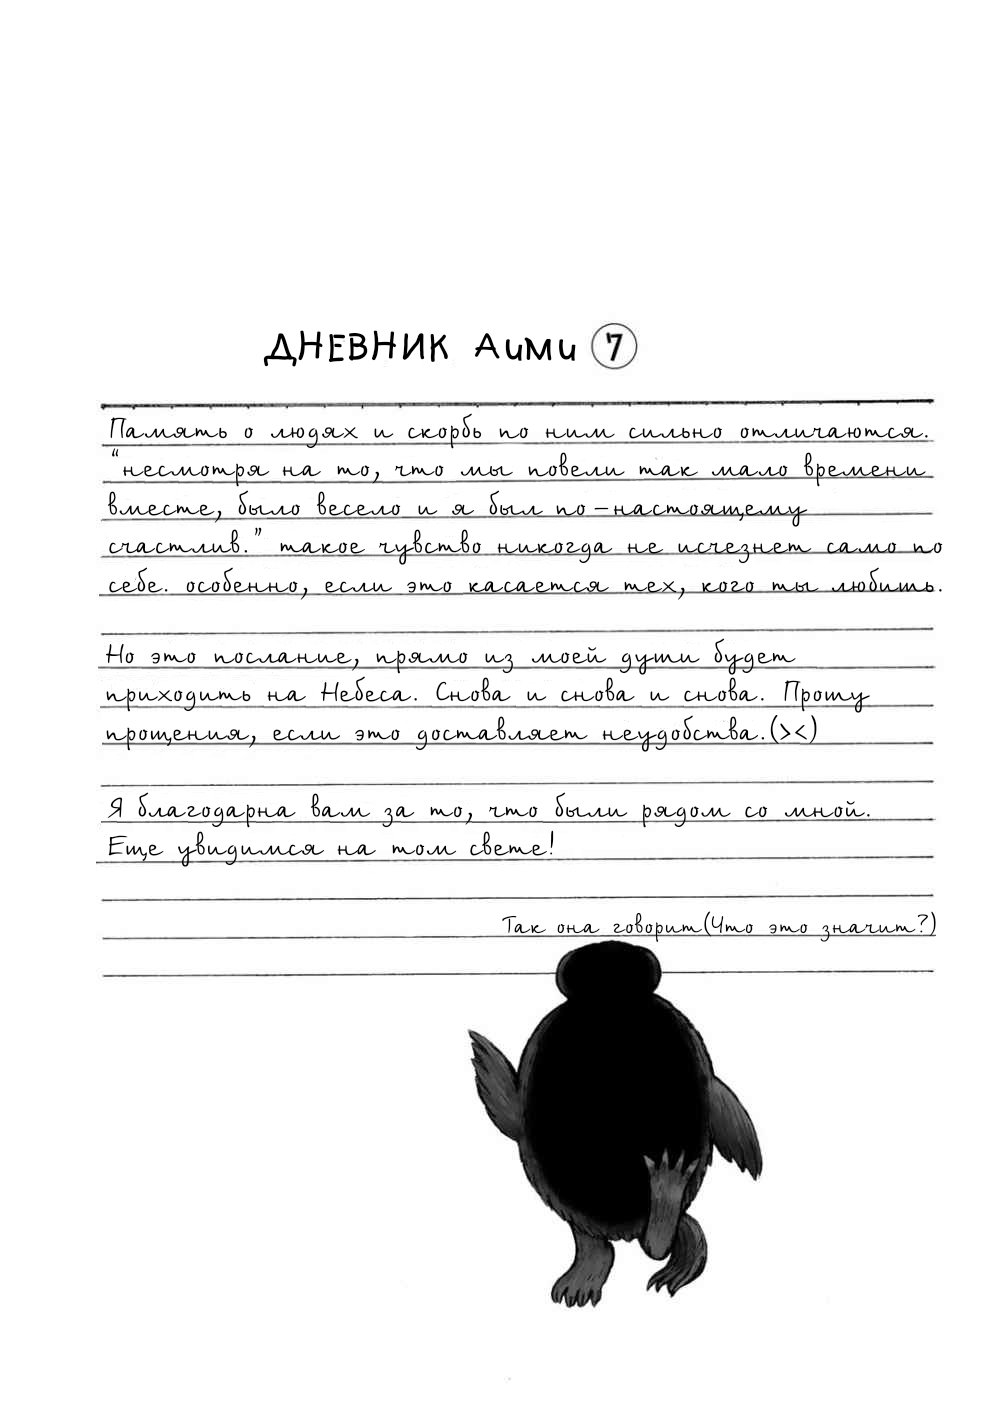 ДНЕВНИК Аими 7
Память о людях и скорбь по ним сильно отличаются.
“несмотря на то, что мы повели так мало времени
вместе, было весело и я был по-настоящему
счастлив.” такое чувство никогда не исчезнет само по
себе. особенно, если это касается тех, кого ты любишь.
Но это послание, прямо из моей души будет
приходить на Небеса. Снова и снова и снова. Прошу
прощения, если это доставляет неудобства.(><)
Я благодарна вам за то, что были рядом со мной.
Еще увидимся на том свете!
Так она говорит(Что это значит?)